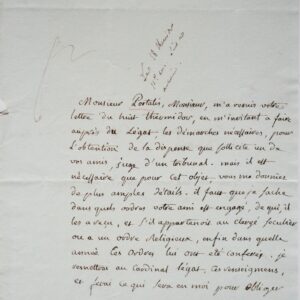 Monsieur Portalis, Monsieur, m'a remis votre
lettre du huit Thermidor, en m'invitant à faire
auprès du Légat les démarches nécessaires, pour
l'obtention de la dispense que sollicite un de
vos amis, juge d'un tribunal. mais il est
nécessaire que pour cet objet vous me donniez
de plus amples détails. il faut que je sache
dans quels ordres votre ami est engagé, de qui il
les a reçu, et s'il appartenoit au clergé séculier
ou a un ordre Religieux, enfin dans quelle
année les ordres lui ont été conférés. je
remettrai au Cardinal légat, ces renseignemens,
et ferai ce qui sera en moi pour obliger